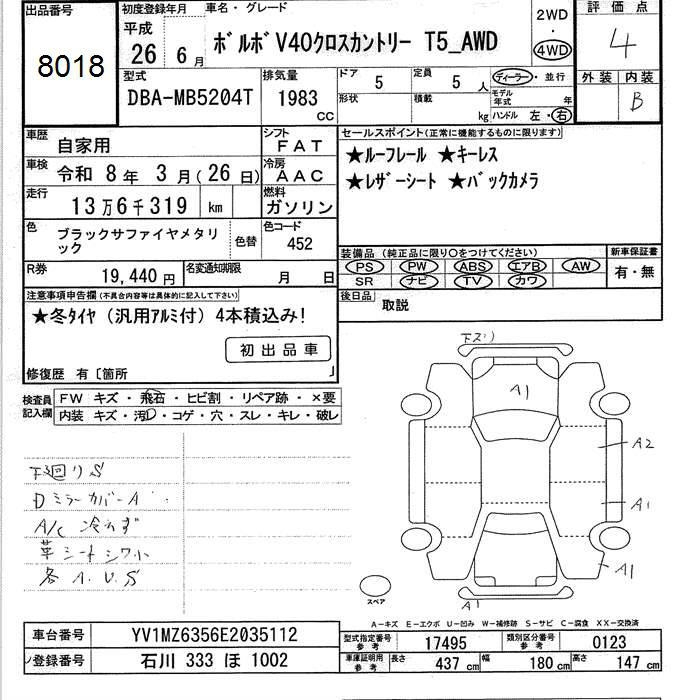 出品番号
8018
初度登録年月
平成
26年6月
車名・グレード
ボルボV40クロスカントリー T5_AWD
2WD
・
4WD
評価点
4
外装 内装
B
型式
DBA-MB5204T
排気量
1983
CC
ドア
5
定員
5人
形状
積載
kg
ディーラー・並行
モデル年式 年
ハンドル 左・右
車歴
自家用
シフト
FAT
車検
令和 8年 3月(26日)
冷房
AAC
走行
13万6千319 km
燃料
ガソリン
色
ブラックサファイヤメタリック
色替
色コード
452
R券
19,440円
名変通知期限
月 日
セールスポイント(正常に機能するものに限ります)
★ルーフレール ★キーレス
★レザーシート ★バックカメラ
装備品 (純正品に限り○をつけてください)
PS PW ABS エアB AW
SR ナビ TV カワ
新車保証書
有・無
後日品
取説
注意事項申告欄(不具合内容等は具体的に記入して下さい)
★冬タイヤ(汎用アルミ付)4本積込み!
初出品車
修復歴 有〔箇所 〕
検査員記入欄
FW キズ・飛石・ヒビ割・リペア跡・×要
内装 キズ・汚レ・コゲ・穴・スレ・キレ・破レ
下廻りS
DミラーカバーA
A/C 冷えず
革シートシワ小
各A.U.S
下スリ
A1
A2
A1
A1
スペア
A-キズ E-エクボ U-凹み W-補修跡 S-サビ C-腐食 XX-交換済
車台番号
YV1MZ6356E2035112
登録番号
石川 333 ほ 1002
型式指定番号
参考
17495
類別区分番号
参考
0123
車庫証明用
参考
長さ
437 cm
幅
180 cm
高さ
147 cm